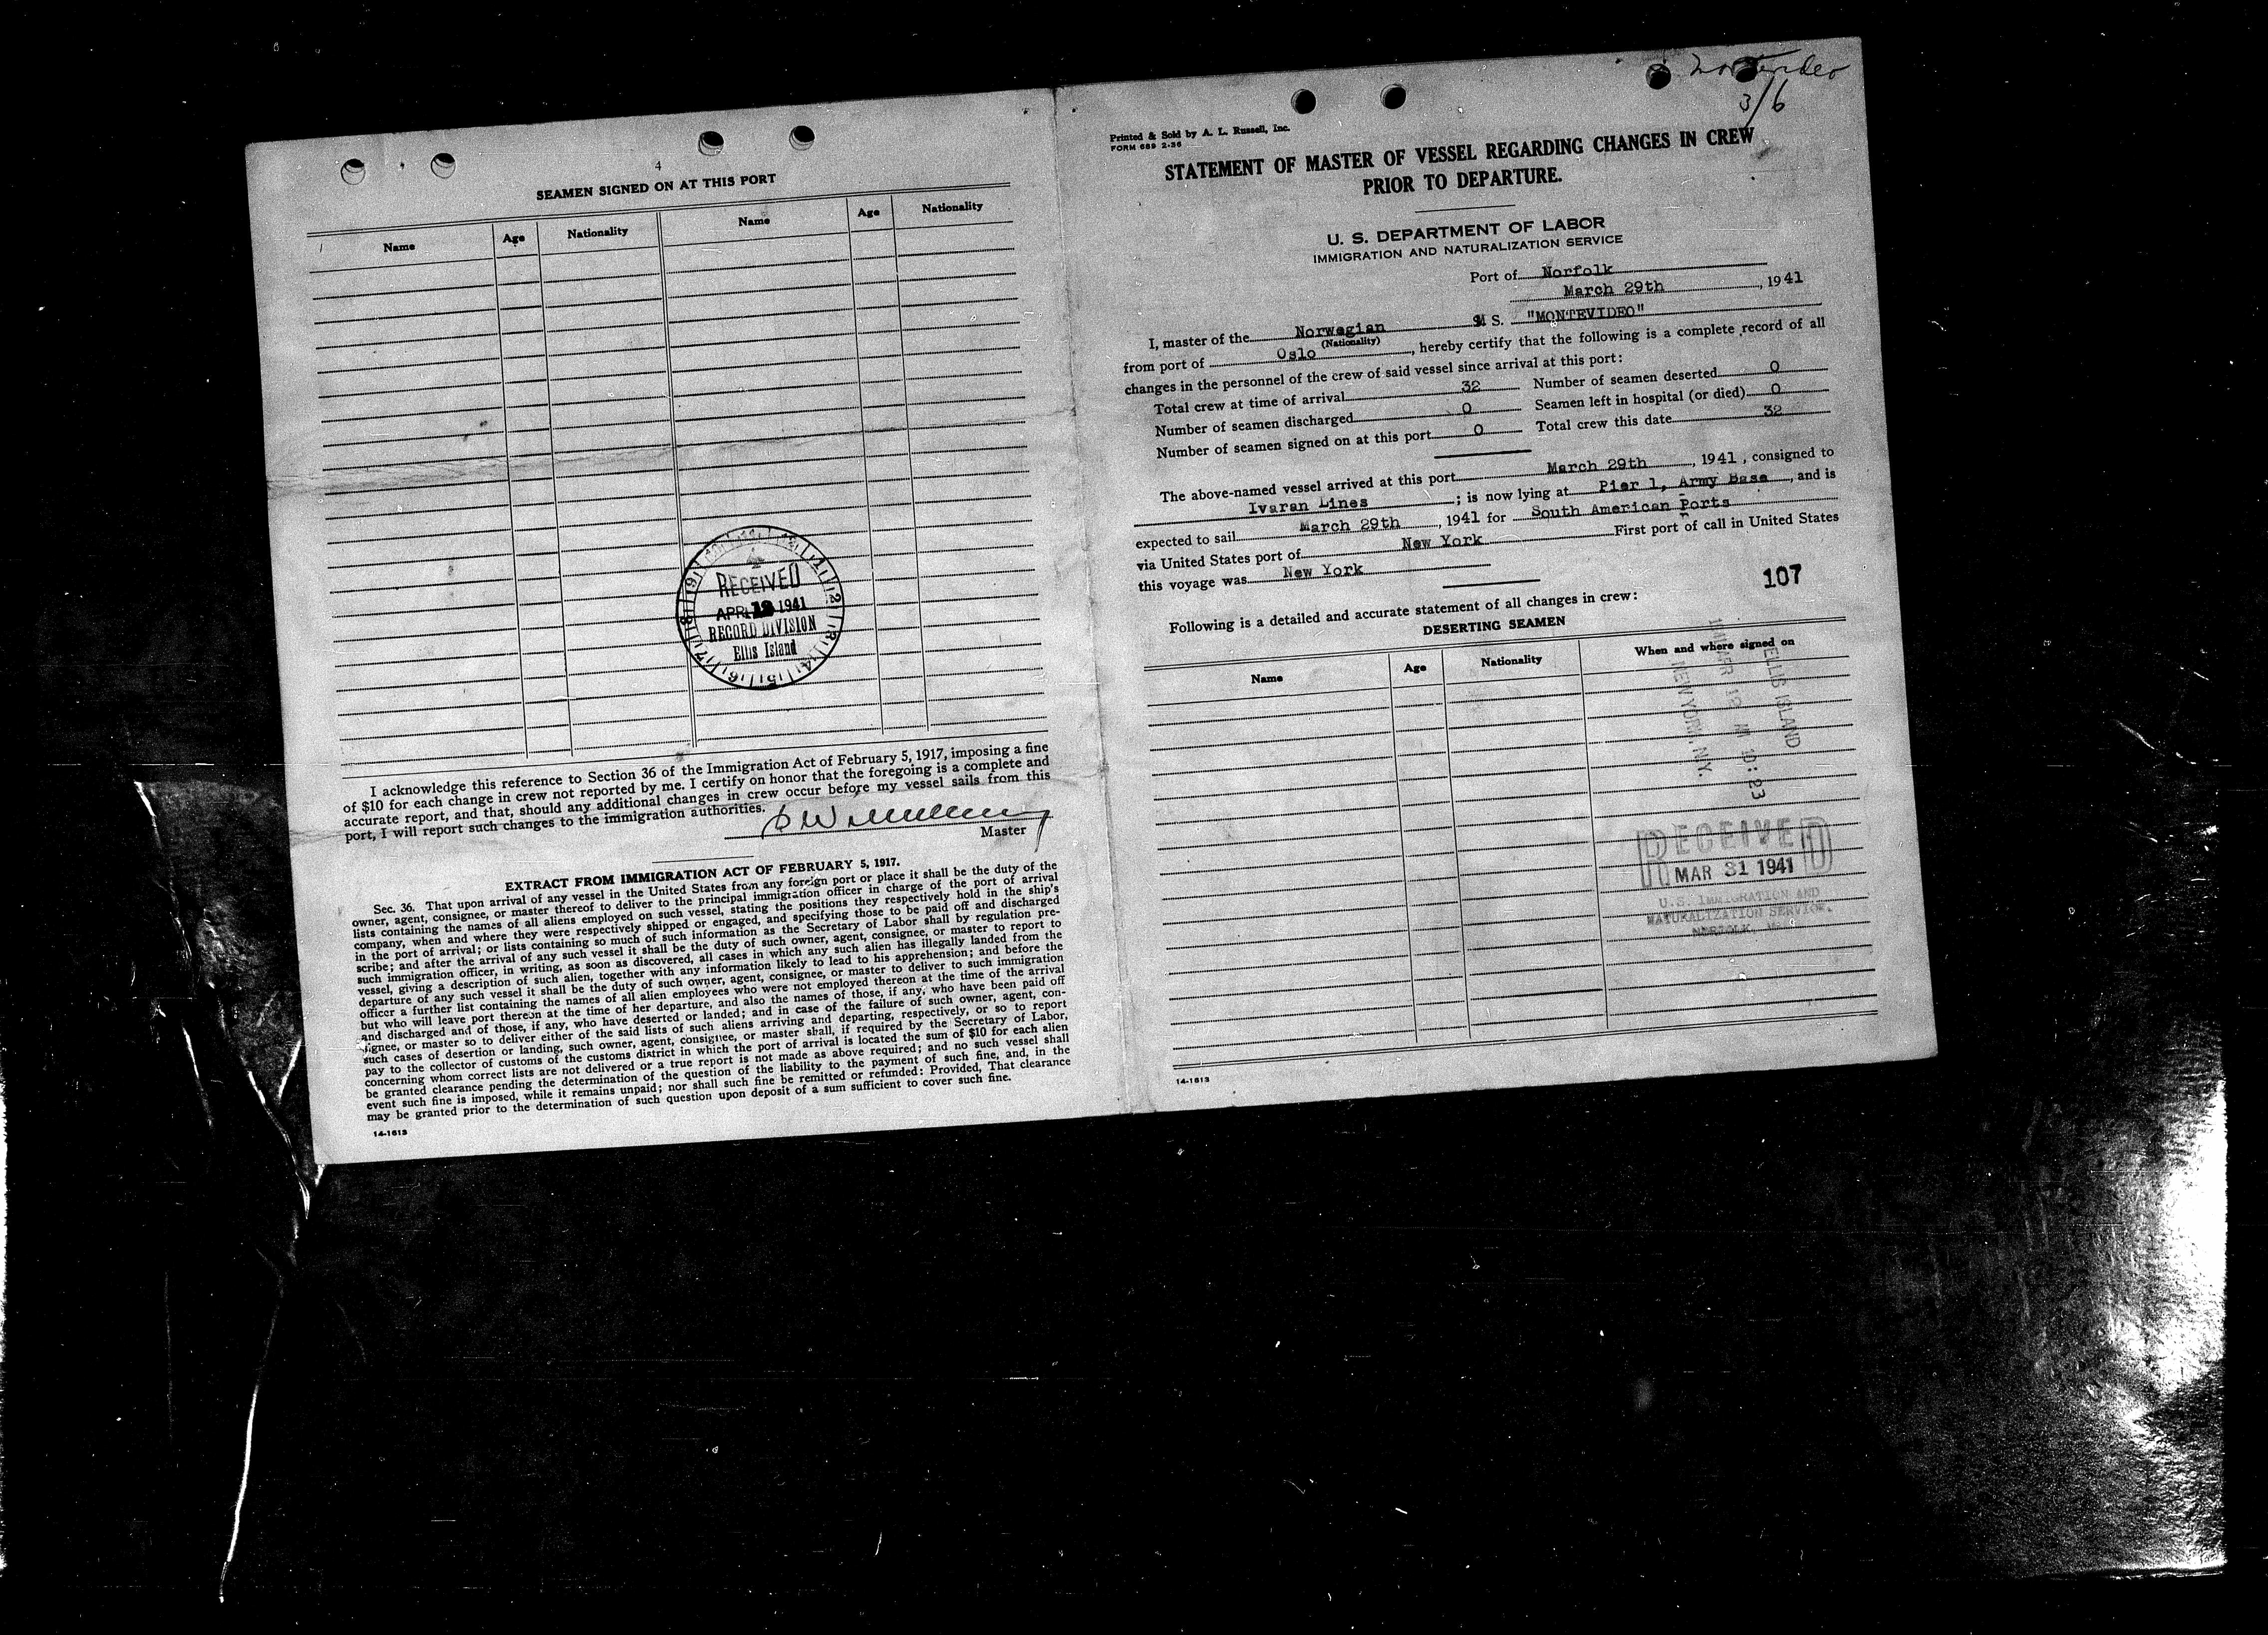 4
SEAMEN SIGNED ON AT THIS PORT
Name Age Nationality Name Age Nationality
RECEIVED
APR 12 1941
RECORD DIVISION
Ellis Island
I acknowledge this reference to Section 36 of the Immigration Act of February 5, 1917, imposing a fine
of $10 for each change in crew not reported by me. I certify on honor that the foregoing is a complete and
accurate report, and that, should any additional changes in crew occur before my vessel sails from this
port, I will report such changes to the immigration authorities.
Master
EXTRACT FROM IMMIGRATION ACT OF FEBRUARY 5, 1917.
Sec. 36. That upon arrival of any vessel in the United States from any foreign port or place it shall be the duty of the
owner, agent, consignee, or master thereof to deliver to the principal immigration officer in charge of the port of arrival
lists containing the names of all aliens employed on such vessel, stating the positions they respectively hold in the ship's
company, when and where they were respectively shipped or engaged, and specifying those to be paid off and discharged
in the port of arrival; or lists containing so much of such information as the Secretary of Labor shall by regulation pre-
scribe; and after the arrival of any such vessel it shall be the duty of such owner, agent, consignee, or master to report to
such immigration officer, in writing, as soon as discovered, all cases in which any such alien has illegally landed from the
vessel, giving a description of such alien, together with any information likely to lead to his apprehension; and before the
departure of any such vessel it shall be the duty of such owner, agent, consignee, or master to deliver to such immigration
officer a further list containing the names of all alien employees who were not employed thereon at the time of the arrival
but who will leave port thereon at the time of her departure, and also the names of those, if any, who have been paid off
and discharged and of those, if any, who have deserted or landed; and in case of the failure of such owner, agent, con-
signee, or master so to deliver either of the said lists of such aliens arriving and departing, respectively, or so to report
such cases of desertion or landing, such owner, agent, consignee, or master shall, if required by the Secretary of Labor,
pay to the collector of customs of the customs district in which the port of arrival is located the sum of $10 for each alien
concerning whom correct lists are not delivered or a true report is not made as above required; and no such vessel shall
be granted clearance pending the determination of the question of the liability to the payment of such fine, and, in the
event such fine is imposed, while it remains unpaid; nor shall such fine be remitted or refunded: Provided, That clearance
may be granted prior to the determination of such question upon deposit of a sum sufficient to cover such fine.
14-1613
Montevideo
3/6
Printed & Sold by A. L. Russell, Inc.
FORM 689 2-36
STATEMENT OF MASTER OF VESSEL REGARDING CHANGES IN CREW
PRIOR TO DEPARTURE.
U. S. DEPARTMENT OF LABOR
IMMIGRATION AND NATURALIZATION SERVICE
Port of Norfolk
March 29th, 1941
I, master of the Norwegian M S. "MONTEVIDEO"
(Nationality)
from port of Oslo, hereby certify that the following is a complete record of all
changes in the personnel of the crew of said vessel since arrival at this port:
Total crew at time of arrival 32 Number of seamen deserted 0
Number of seamen discharged 0 Seamen left in hospital (or died) 0
Number of seamen signed on at this port 0 Total crew this date 32
The above-named vessel arrived at this port March 29th, 1941, consigned to
Ivaran Lines; is now lying at Pier 1, Army Base, and is
expected to sail March 29th, 1941 for South American Ports
via United States port of New York First port of call in United States
this voyage was New York
107
Following is a detailed and accurate statement of all changes in crew:
DESERTING SEAMEN
Name Age Nationality When and where signed on
ELLIS ISLAND
10:23
NEW YORK, N.Y.
RECEIVED
MAR 31 1941
U.S. IMMIGRATION AND
NATURALIZATION SERVICE,
NORFOLK,
14-1613